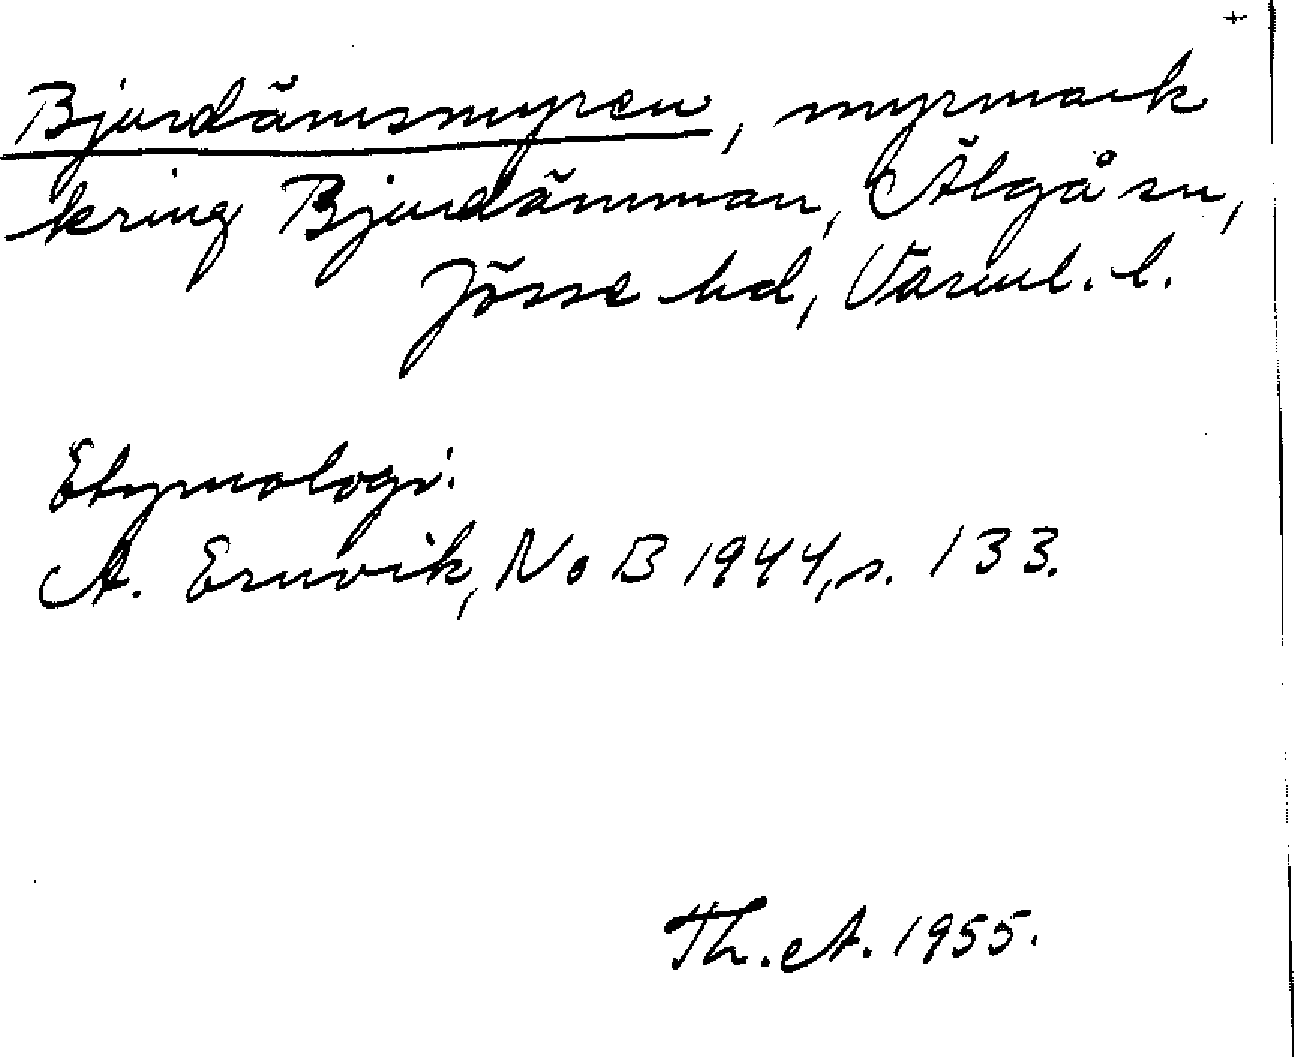 +
Bjurdämsmyren, myrmark
kring Bjurdämman, Älgå sn,
Jösse hd, Värml. l.
Etymologi:
A. Ernvik, NoB 1944, s. 133.
Th. A. 1955.